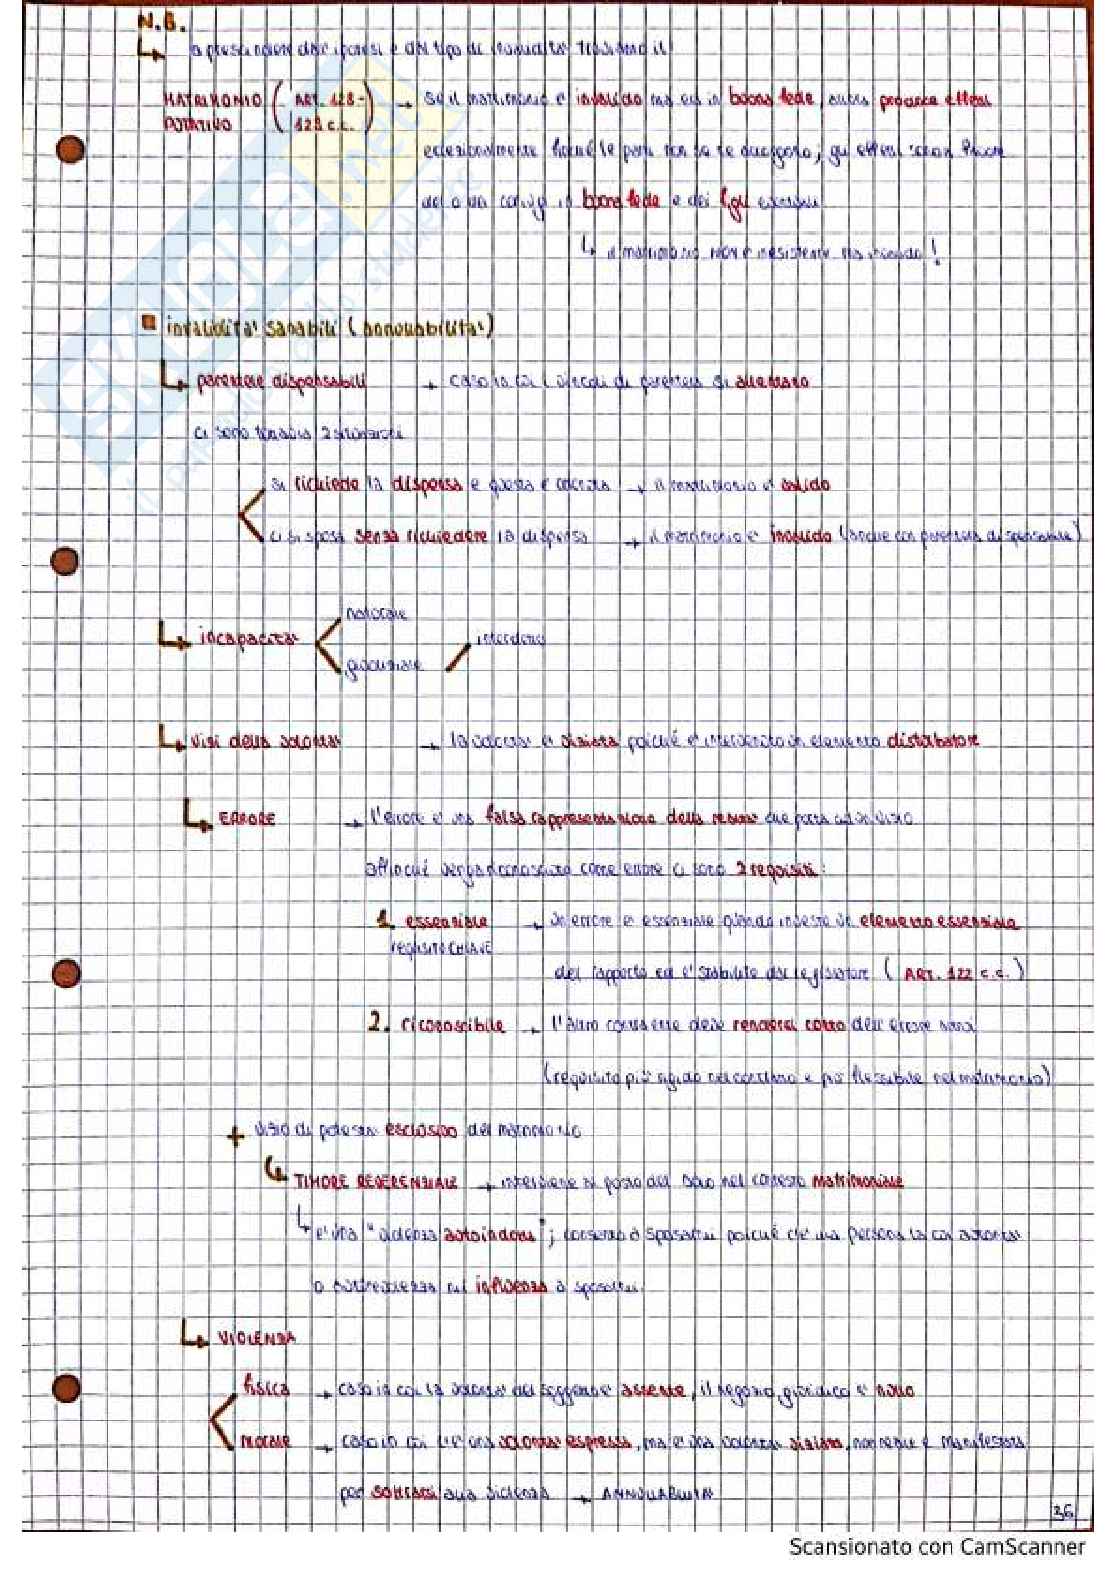 N.B.
a prescindere dall'ipotesi e dal tipo di invalidità troviamo il
MATRIMONIO PUTATIVO ( ART. 128 - 129 c.c. ) → se il matrimonio è invalido ma es in buona fede, allora produce effetti
eccezionalmente finché le parti non se ne accorgono; gli effetti sono
del o dei coniugi in buona fede e dei figli
il matrimonio NON è inesistente ma invalido!
invalidità sanabili (annullabilità)
parentele dispensabili → caso in cui i vincoli di parentela si allentano
ci sono tuttavia 2 situazioni
si richiede la dispensa e questa è concessa → il matrimonio è valido
ci si sposa senza richiedere la dispensa → il matrimonio è invalido (anche con parentela dispensabile)
naturale
incapacità interdetto
giudiziale
vizi della volontà → la volontà è viziata poiché è intervenuto un elemento disturbatore
ERRORE → l'errore è una falsa rappresentazione della realtà che porta ad un vizio
affinché venga riconosciuto come errore ci sono 2 requisiti:
1. essenziale → un errore è essenziale quando investe un elemento essenziale
requisito CHIAVE
del rapporto ed è stabilito dal legislatore ( ART. 122 c.c. )
2. riconoscibile → l'altro contraente deve rendersi conto dell'errore
(requisito più rigido nel contratto e più flessibile nel matrimonio)
+ vizio di potestà esclusivo del matrimonio
TIMORE REVERENZIALE → interviene al posto del dolo nel contesto matrimoniale
è una "violenza autoindotta"; consenso a sposarsi poiché c'è una persona la cui autorità
o autorevolezza mi influenza a sposarmi.
VIOLENZA
fisica → caso in cui la volontà del soggetto è assente, il negozio giuridico è nullo
morale → caso in cui c'è una volontà espressa, ma è una volontà viziata, non reale e manifestata
per sottrarsi alla violenza → ANNULLABILITÀ
36
Scansionato con CamScanner